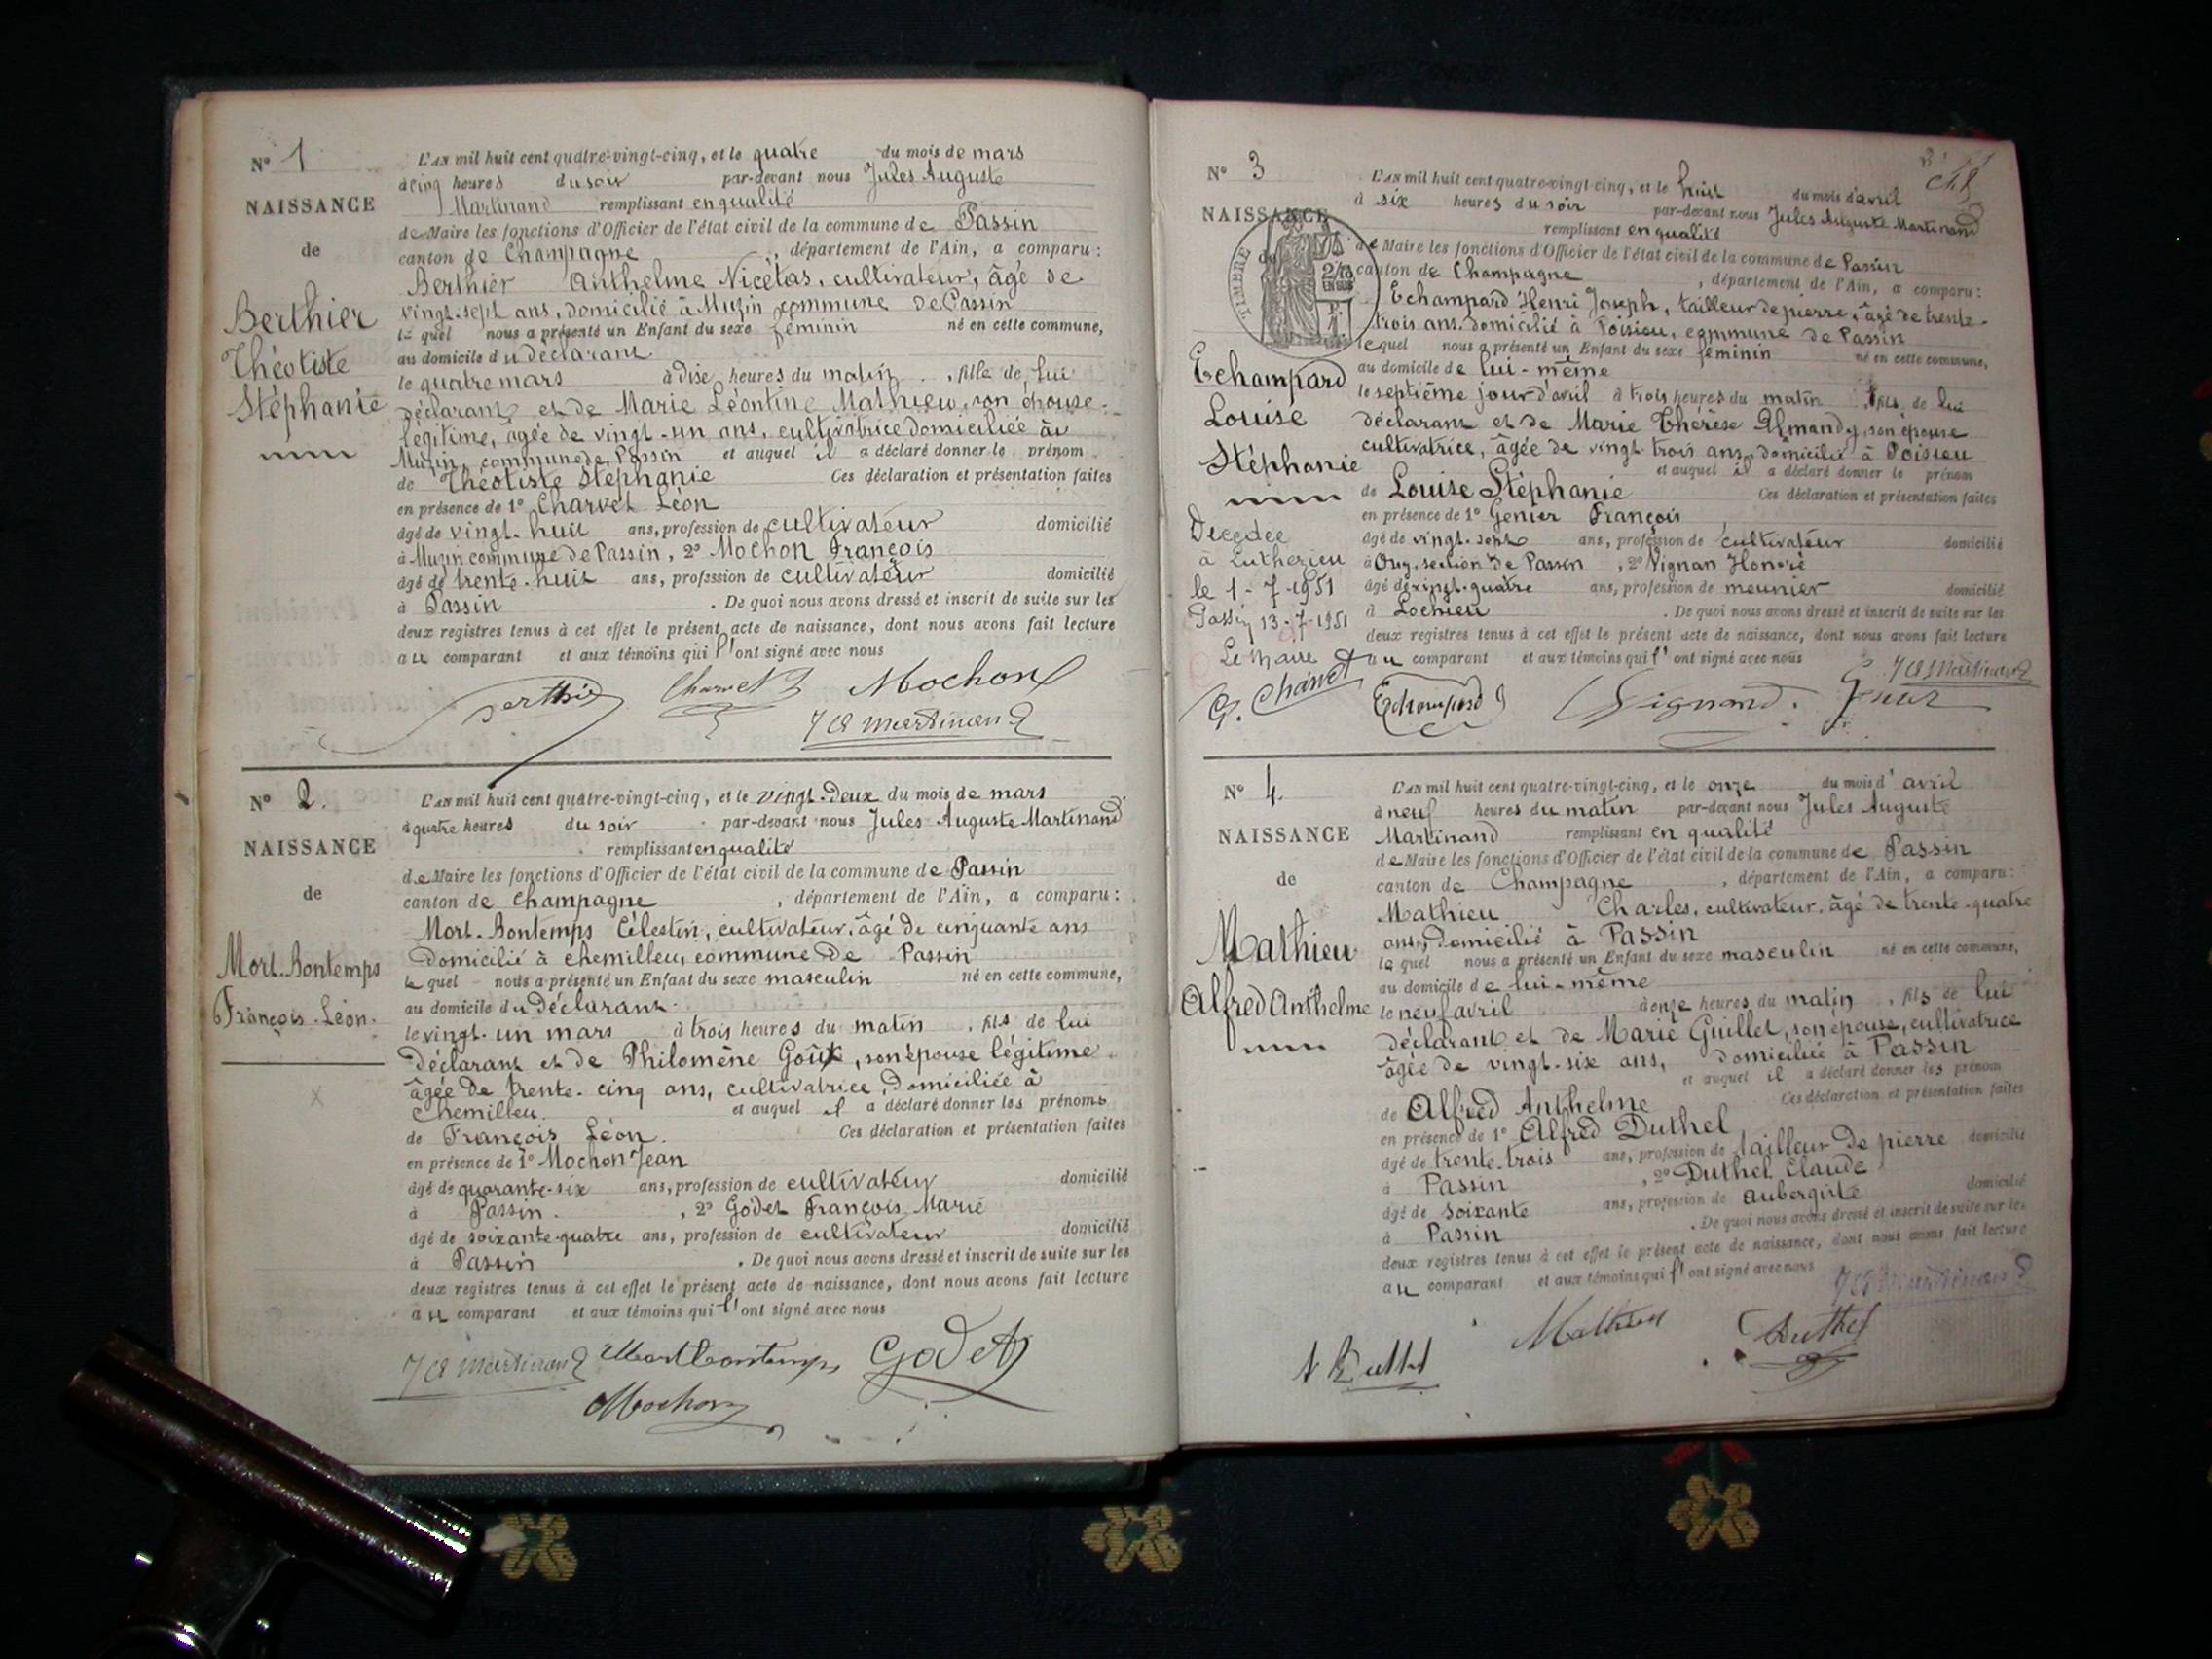 N° 1
NAISSANCE
de
Berthier
Théotiste
Stéphanie
L'AN mil huit cent quatre-vingt-cinq, et le quatre du mois de mars
à cinq heures du soir par-devant nous Jules Auguste
Martinand remplissant en qualité
de Maire les fonctions d'Officier de l'état civil de la commune de Passin
canton de Champagne, département de l'Ain, a comparu :
Berthier Anthelme Nicétas, cultivateur, âgé de
vingt-sept ans, domicilié à Muzin commune de Passin
le quel nous a présenté un Enfant du sexe féminin né en cette commune,
au domicile du déclarant
le quatre mars à dise heures du matin, fille de lui
déclarant et de Marie Léontine Mathieu, son épouse
légitime, âgée de vingt-un ans, cultivatrice domiciliée au
Muzin, commune de Passin et auquel il a déclaré donner le prénom
de Théotiste Stéphanie Ces déclaration et présentation faites
en présence de 1° Charvet Léon
âgé de vingt-huit ans, profession de cultivateur domicilié
à Muzin commune de Passin, 2° Mochon François
âgé de trente-huit ans, profession de cultivateur domicilié
à Passin. De quoi nous avons dressé et inscrit de suite sur les
deux registres tenus à cet effet le présent acte de naissance, dont nous avons fait lecture
au comparant et aux témoins qui l'ont signé avec nous
Berthier Charvet Mochon
JA Martinand
N° 2.
NAISSANCE
de
Mort-Bontemps
François-Léon.
L'AN mil huit cent quatre-vingt-cinq, et le vingt-deux du mois de mars
à quatre heures du soir par-devant nous Jules Auguste Martinand
remplissant en qualité
de Maire les fonctions d'Officier de l'état civil de la commune de Passin
canton de Champagne, département de l'Ain, a comparu :
Mort-Bontemps Célestin, cultivateur, âgé de cinquante ans
domicilié à chemilleu, commune de Passin
le quel nous a présenté un Enfant du sexe masculin né en cette commune,
au domicile du déclarant
le vingt-un mars à trois heures du matin, fils de lui
déclarant et de Philomène, son épouse légitime
âgée de trente-cinq ans, cultivatrice, domiciliée à
Chemilleu. et auquel il a déclaré donner les prénoms
de François Léon. Ces déclaration et présentation faites
en présence de 1° Mochon Jean
âgé de quarante-six ans, profession de cultivateur domicilié
à Passin, 2° Godet François Marie
âgé de soixante-quatre ans, profession de cultivateur domicilié
à Passin. De quoi nous avons dressé et inscrit de suite sur les
deux registres tenus à cet effet le présent acte de naissance, dont nous avons fait lecture
au comparant et aux témoins qui l'ont signé avec nous
JA Martinand Mort Bontemps Godet
Mochon
N° 3
NAISSANCE
de
TIMBRE
2/10
EN SUS
Echampard
Louise
Stéphanie
Décédée
à Luthezieu
le 1-7-1951
Passin 13-7-1951
Le Maire
L'AN mil huit cent quatre-vingt-cinq, et le huit du mois d'avril
à six heures du soir par-devant nous Jules Auguste Martinand
remplissant en qualité
de Maire les fonctions d'Officier de l'état civil de la commune de Passin
canton de Champagne, département de l'Ain, a comparu :
Echampard Henri Joseph, tailleur de pierre, âgé de trente-
trois ans. domicilié à Poisieu, commune de Passin
lequel nous a présenté un Enfant du sexe féminin né en cette commune,
au domicile de lui-même
le septième jour d'avril à trois heures du matin, fils de lui
déclarant et de Marie Thérèse Almandy, son épouse
cultivatrice, âgée de vingt-trois ans, domicilié à Poisieu
et auquel il a déclaré donner le prénom
de Louise Stéphanie Ces déclaration et présentation faites
en présence de 1° Genier François
âgé de vingt-sept ans, profession de cultivateur domicilié
à Ouy, section de Passin, 2° Vignan Honoré
âgé de vingt-quatre ans, profession de meunier domicilié
à Lochieu. De quoi nous avons dressé et inscrit de suite sur les
deux registres tenus à cet effet le présent acte de naissance, dont nous avons fait lecture
au comparant et aux témoins qui l'ont signé avec nous
JA Martinand
Echampard Vignand.
N° 4.
NAISSANCE
de
Mathieu
Alfred Anthelme
L'AN mil huit cent quatre-vingt-cinq, et le onze du mois d'avril
à neuf heures du matin par-devant nous Jules Auguste
Martinand remplissant en qualité
de Maire les fonctions d'Officier de l'état civil de la commune de Passin
canton de Champagne, département de l'Ain, a comparu :
Mathieu Charles, cultivateur, âgé de trente-quatre
ans, domicilié à Passin
le quel nous a présenté un Enfant du sexe masculin né en cette commune,
au domicile de lui-même
le neuf avril à onze heures du matin, fils de lui
déclarant et de Marie Guillet, son épouse, cultivatrice
âgée de vingt-six ans, domiciliée à Passin
et auquel il a déclaré donner les prénom
de Alfred Anthelme Ces déclaration et présentation faites
en présence de 1° Alfred Duthel
âgé de trente-trois ans, profession de tailleur de pierre domicilié
à Passin, 2° Duthel Claude
âgé de soixante ans, profession de aubergiste domicilié
à Passin. De quoi nous avons dressé et inscrit de suite sur les
deux registres tenus à cet effet le présent acte de naissance, dont nous avons fait lecture
au comparant et aux témoins qui l'ont signé avec nous
JA Martinand
Mathieu Duthel
A Duthel